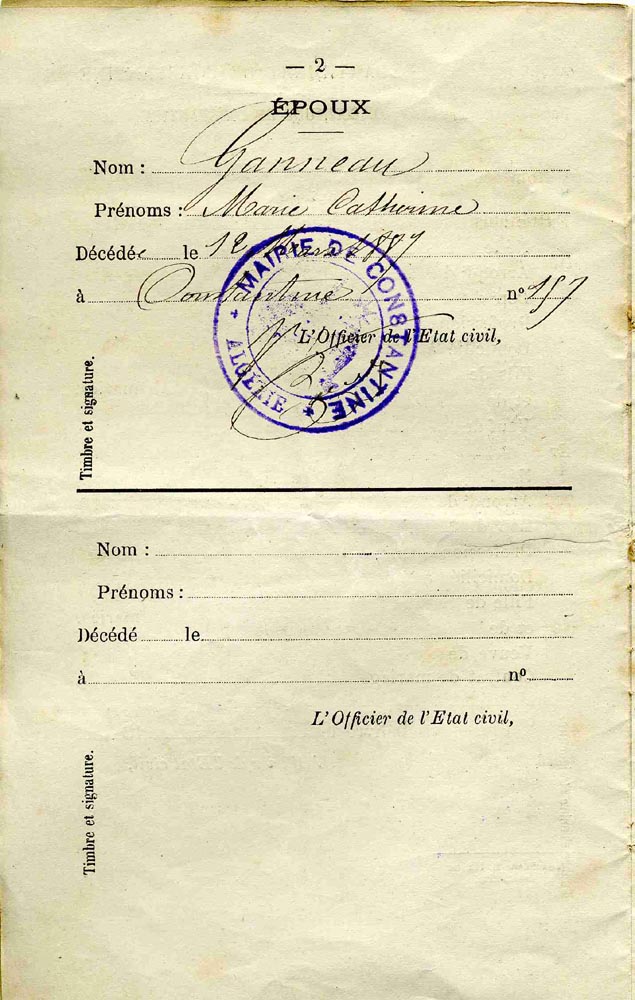 — 2 —
ÉPOUX
Nom : Ganneau
Prénoms : Marie Catherine
Décédée le 12 Mars 1897
à Constantine nº 157
L'Officier de l'Etat civil,
MAIRIE DE CONSTANTINE
ALGERIE
Timbre et signature.
Nom :
Prénoms :
Décédé le
à nº
L'Officier de l'Etat civil,
Timbre et signature.